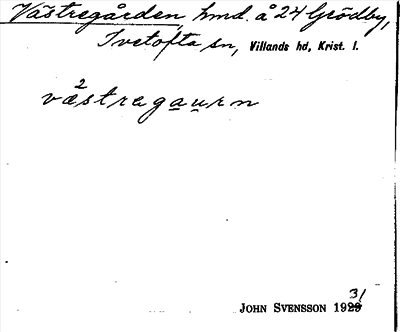 Västregården, hmd. å 24 Grödby,
Ivetofta sn, Villands hd, Krist. l.
2
væstragau̱rn
JOHN SVENSSON 1929 31